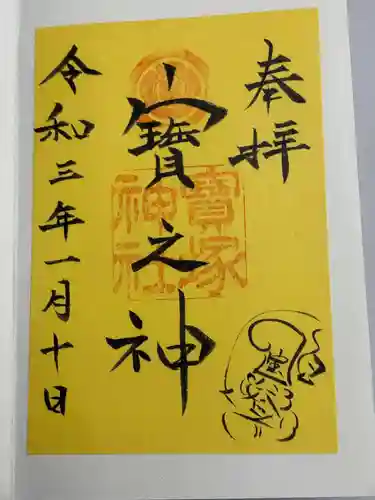 奉拝
寳之神
寳塚
神社
令和三年一月十日